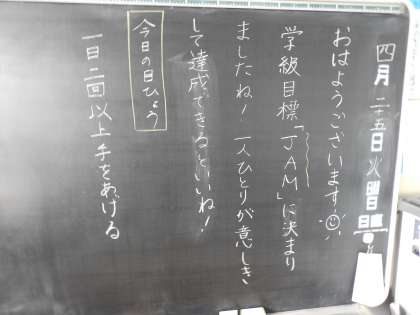 四月二五日火曜日
おはようございます
学級目標「JAM」に決まり
ましたね！一人ひとりが意しき
して達成できるといいね！
今日の目ひょう
一日二回以上手をあげる